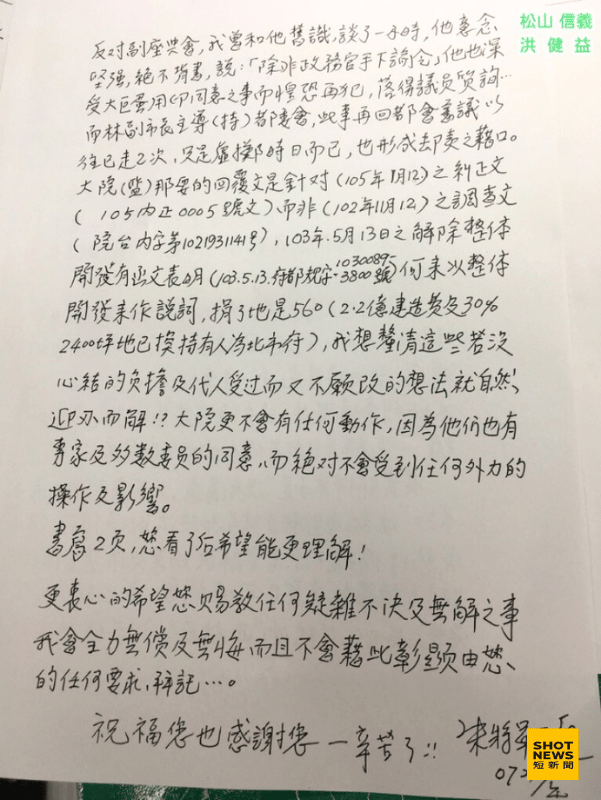 松山 信義
洪 健 益
反对副座與會,我曾和他舊識,談了一小時,他意念
堅强,絕不背書,説:「除非政務官手下諭令」他也深
受大巨蛋用印同意之事而惶恐再犯,落得議員質詢…
而林副市長主導(持)都委會,此事再回都會審議以
往已走2次,只是虛擲時日而已,也形成去函之藉口。
大院(監)那要的回覆文是針对(105年1月12)之糾正文
(105内正0005號文)而非(102年11月12)之調查文
(院台内字第1021931141号),103年.5月13日之解除整体
開發有函文表4月(103.5.13.府都規字.10300895
3800號)何來以整体
開發來作説詞,捐了地是560(2.2億建造費及30%
2400坪地已模持有人為北市府),我想釐清這些若沒
心結的负擔及代人受过而又不願改的想法就自然、
迎刃而解!?大院更不會有任何動作,因為他们也有
專家及多數委員的同意,而絕对不會受到任何外力的
操作及影響。
書寫2页,您看了后希望能更理解!
更衷心的希望您賜教任何疑難不決及無解之事
我會全力無償及無悔而且不會藉此彰顯由您、
的任何要求,拜託…。
祝福您也感謝您一辛苦了!!
SHOT
NEWS
短新聞